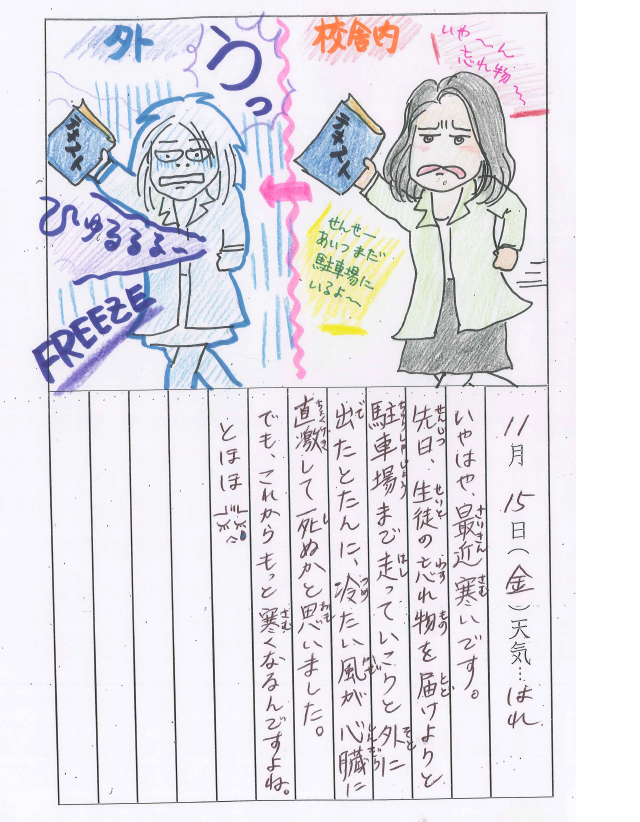 校舎内
いや〜ん
忘れ物〜
せんせー
あいつまだ
駐車場に
いるよ〜
外
うっ
ひゅるるる〜
FREEZE
11月15日（金）天気…はれ
いやはや、最近寒いです。
先日、生徒の忘れ物を届けようと
駐車場まで走っていこうと外に
出たとたんに、冷たい風が心臓に
直激して死ぬかと思いました。
でも、これからもっと寒くなるんですよね。
とほほ